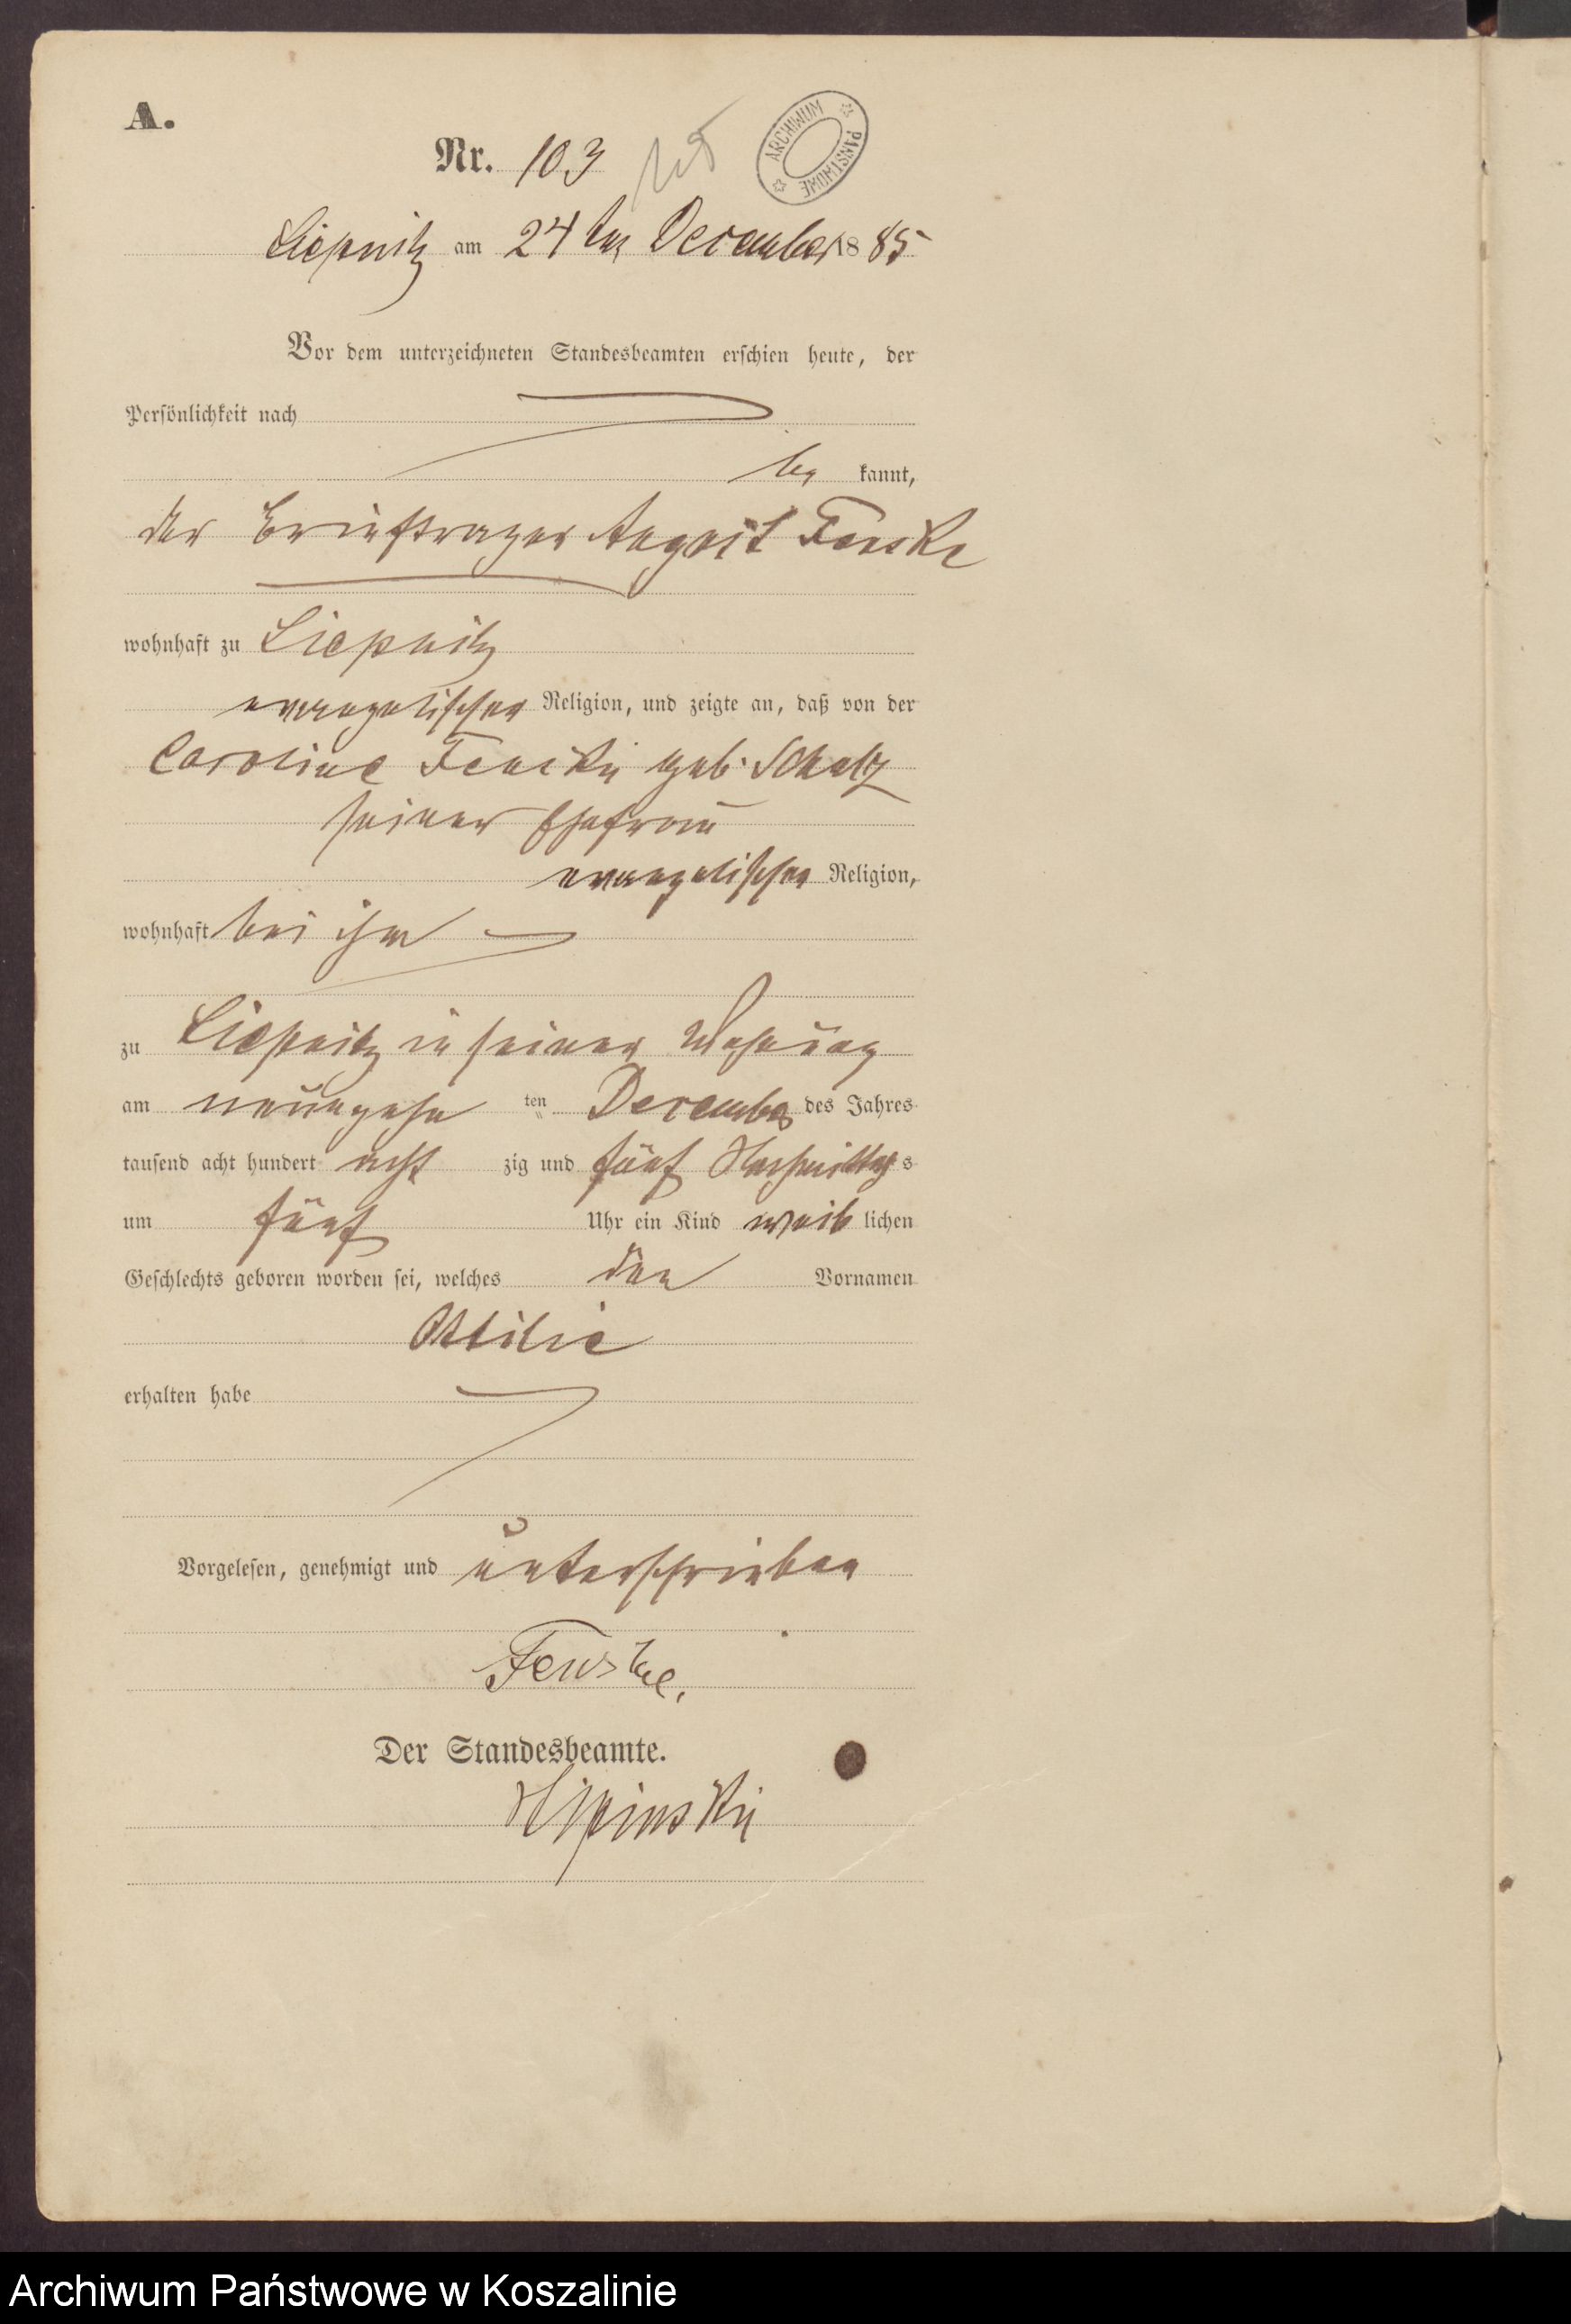 A.
Nr. 103
ARCHIWUM PAŃSTWOWE
Liepnitz am 24ten December 1885
Vor dem unterzeichneten Standesbeamten erschien heute, der
Persönlichkeit nach
be kannt,
der Briefträger August Fenske
wohnhaft zu Liepnitz
evangelischer Religion, und zeigte an, daß von der
Caroline Fenske geb. Schulz
seiner Ehefrau
evangelischer Religion,
wohnhaft bei ihm
zu Liepnitz in seiner Wohnung
am neunzehn ten December des Jahres
tausend acht hundert acht zig und fünf Nachmittags
um fünf Uhr ein Kind weib lichen
Geschlechts geboren worden sei, welches den Vornamen
Ottilie
erhalten habe
Vorgelesen, genehmigt und unterschrieben
Fenske.
Der Standesbeamte.
Archiwum Państwowe w Koszalinie